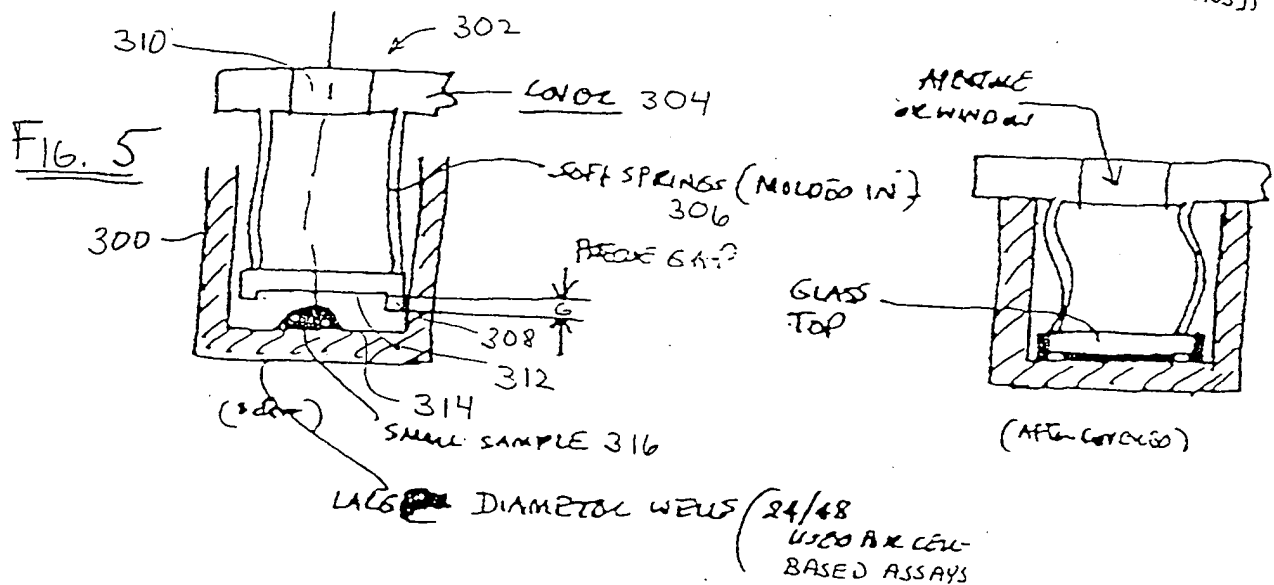 310
302
COVER 304
FIG. 5
SOFT SPRINGS (MOLDED IN)
306
300
G
308
312
314
SMALL SAMPLE 316
LARGE DIAMETER WELLS (24/48
USED FOR CELL-
BASED ASSAYS
APERTURE
OR WINDOW
GLASS
TOP
(AFTER COVERED)